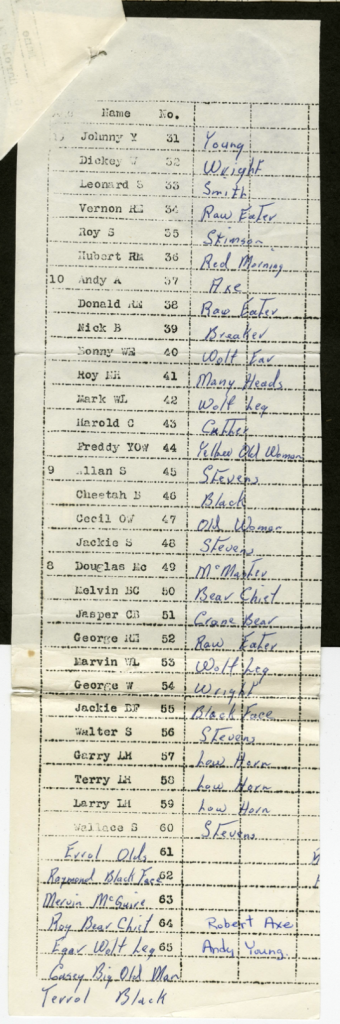 Name No.
Johnny Y 31 Young
Dickey W 32 Wright
Leonard S 33 Smith
Vernon RE 34 Raw Eater
Roy S 35 Stimson
Hubert RM 36 Red Morning
10 Andy A 37 Axe
Donald RE 38 Raw Eater
Nick B 39 Breaker
Sonny WE 40 Wolf Ear
Roy MH 41 Many Heads
Mark WL 42 Wolf Leg
Harold C 43 Cutter
Freddy YOW 44 Yellow Old Woman
9 Allan S 45 Stevens
Cheetah B 46 Black
Cecil OW 47 Old Woman
Jackie S 48 Stevens
8 Douglas Mc 49 McMaster
Melvin BC 50 Bear Chief
Jasper CB 51 Crane Bear
George RE 52 Raw Eater
Marvin WL 53 Wolf Leg
George W 54 Wright
Jackie BF 55 Black Face
Walter S 56 Stevens
Garry LH 57 Low Horn
Terry LH 58 Low Horn
Larry LH 59 Low Horn
Wallace S 60 Stevens
Errol Olds 61
Raymond Black Face 62
Mervin McGuire 63
Roy Bear Chief 64 Robert Axe
Egar Wolf Leg 65 Andy Young
Big Old Man
Terrol Black